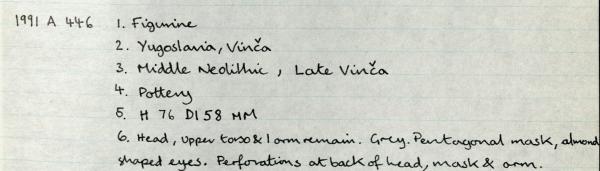 1991 A 446 1. Figurine
2. Yugoslavia, Vinča
3. Middle Neolithic, Late Vinča
4. Pottery
5. H 76 D158 MM
6. Head, upper torso & 1 arm remain. Grey. Pentagonal mask, almond
shaped eyes. Perforations at back of head, mask & arm.